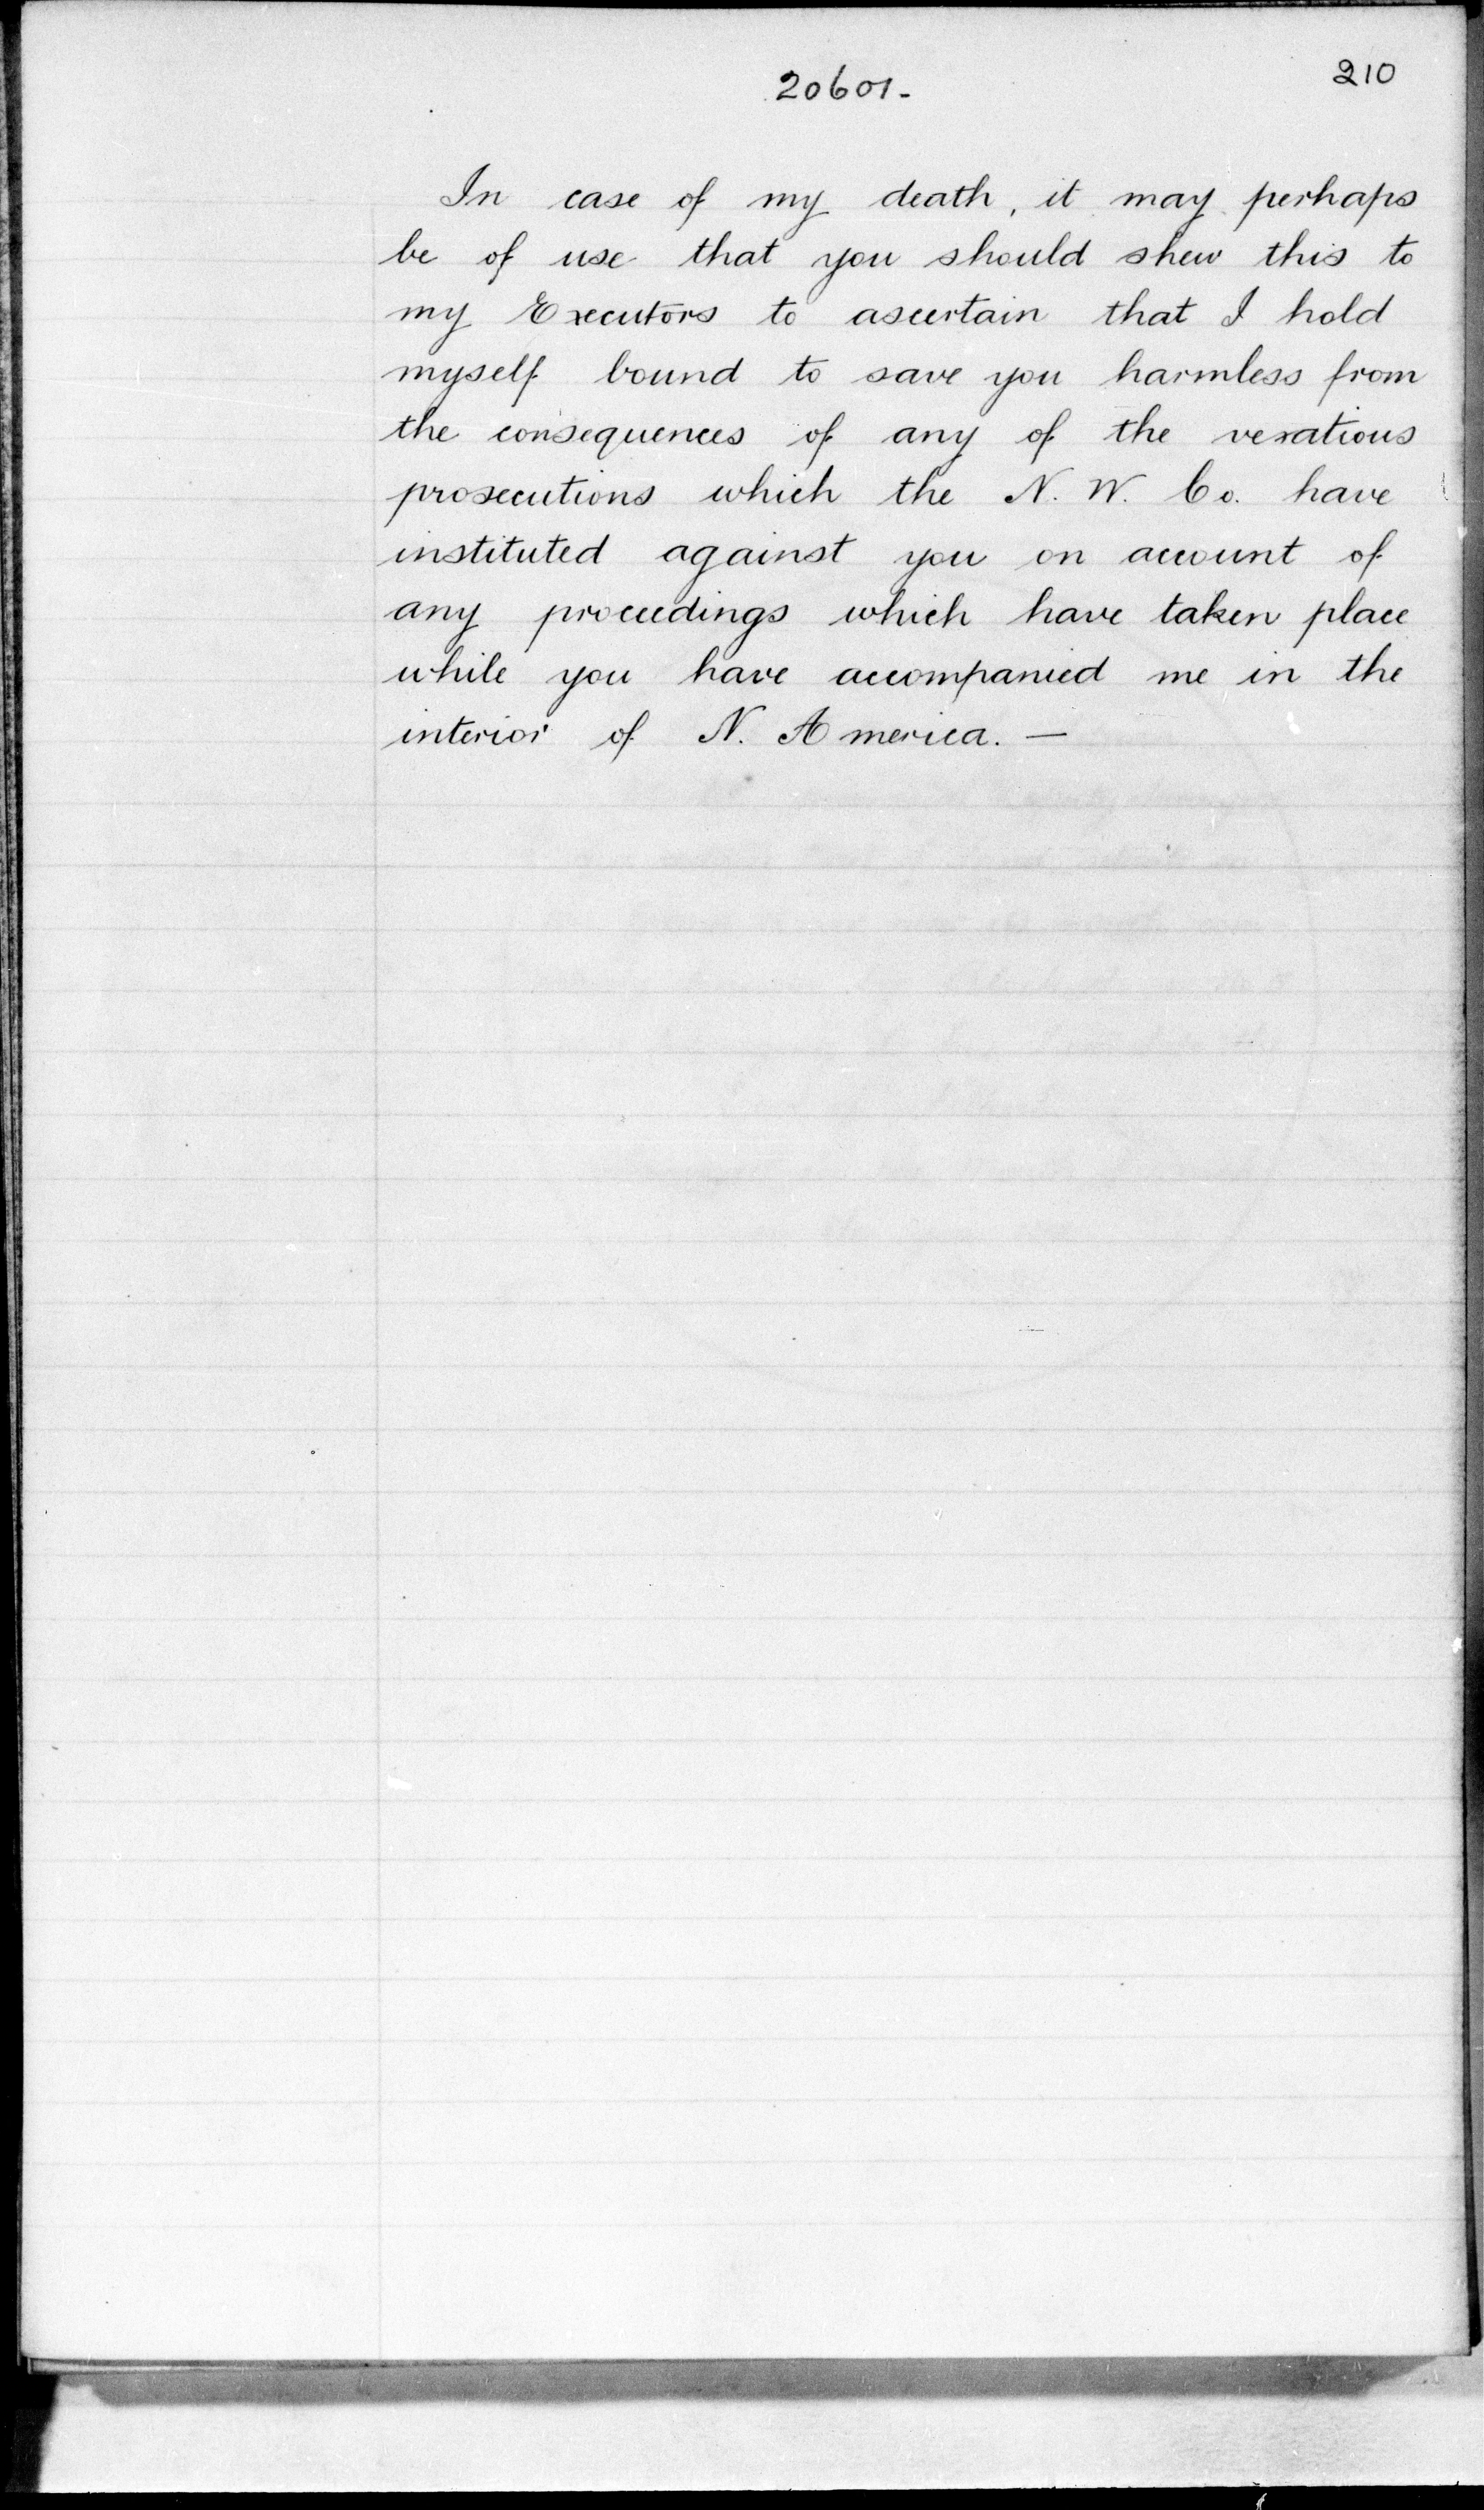 20601-
210
In case of my death, it may perhaps
be of use that you should shew this to
my Executors to ascertain that I hold
myself bound to save you harmless from
the consequences of any of the vexatious
prosecutions which the N. W. Co. have
instituted against you on account of
any proceedings which have taken place
while you have accompanied me in the
interior of N. America. —